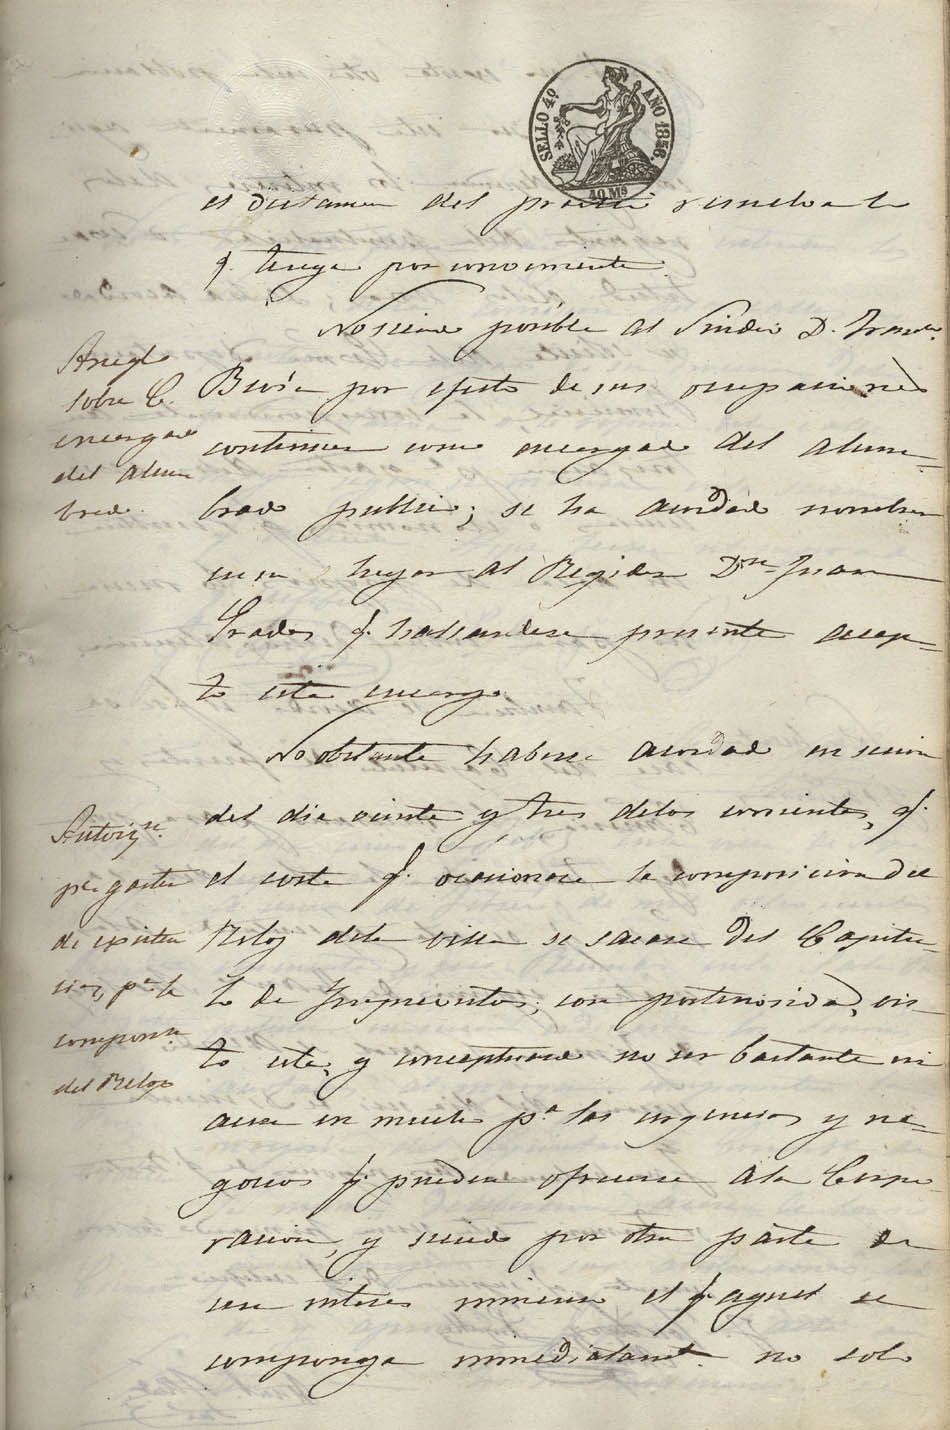 SELLO 4º
AÑO 1856.
40 Ms
el dictamen del práctico resuelva lo
q. tenga por conveniente.
No siendo posible al Síndico D. Franco.
por efecto de sus ocupaciones
continuar como encargado del alum-
brado publico; se ha acordado nombrar
en su lugar al Regidor Dn Juan
Prades q. hallandose presente acep-
to este encargo
Arreglo
sobre el
encargado
del alum
brado.
No obstante haberse acordado en sesion
del dia veinte y tres delos corrientes, q.
el coste q. ocasionase la composicion del
Reloj dela villa se sacase del Capitu-
lo de Imprevistos; con posterioridad, vis-
to este, y conceptuando no ser bastante ni
aun en mucho pa las urgencias y ne-
gocios q. puedan ofrecerse ala Corpo-
racion, y siendo por otra parte de
sumo interes el q. aquel se
componga inmediatamte. no solo
Autorizn.
pa gastos
de
pa la
composn.
del Reloj